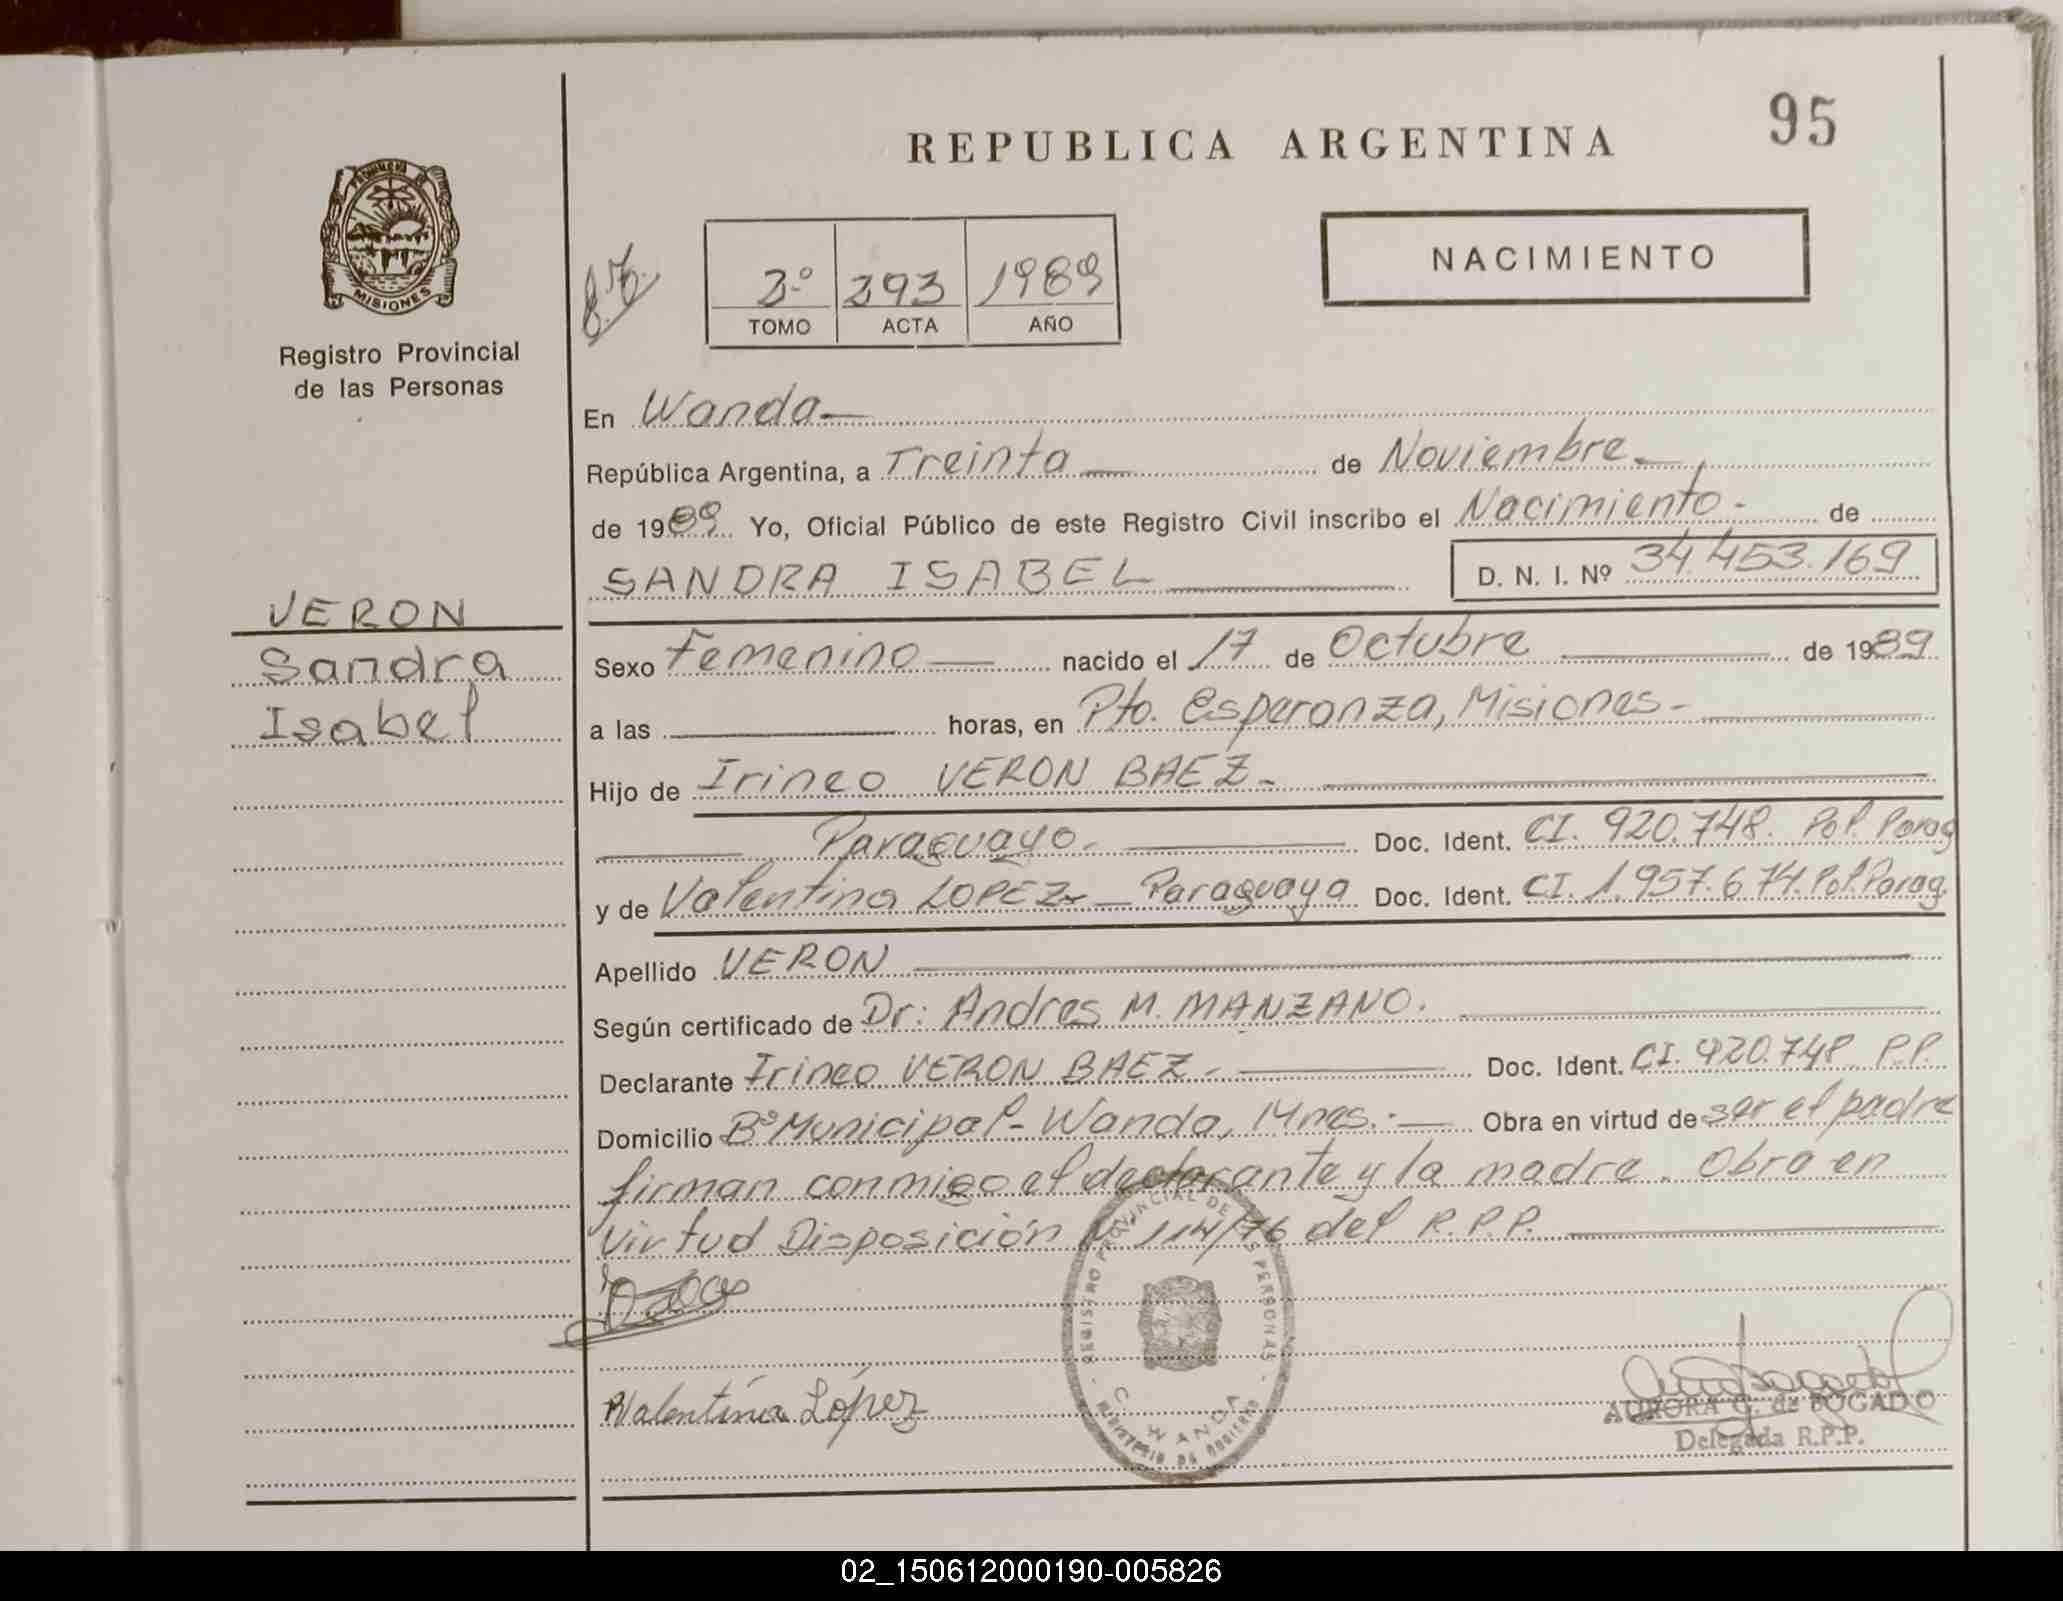 95
REPUBLICA ARGENTINA
PROVINCIA DE
MISIONES
Registro Provincial
de las Personas
3º 393 1989
TOMO ACTA AÑO
NACIMIENTO
En Wanda
República Argentina, a Treinta de Noviembre
de 1989 Yo, Oficial Público de este Registro Civil inscribo el Nacimiento de
SANDRA ISABEL D. N. I. Nº 34.453.169
VERON
Sandra
Isabel
Sexo Femenino nacido el 17 de Octubre de 1989
a las horas, en Pto. Esperanza, Misiones
Hijo de Irineo VERON BAEZ
Paraguayo Doc. Ident. CI. 920.748. Pol. Parag
y de Valentina LOPEZ Paraguaya Doc. Ident. CI. 1.957.674. Pol. Parag.
Apellido VERON
Según certificado de Dr: Andres M. MANZANO.
Declarante Irineo VERON BAEZ Doc. Ident. CI. 920.748 P.P.
Domicilio Bº Municipal - Wanda, Mnes. Obra en virtud de ser el padre
firman conmigo el declarante y la madre. Obra en
virtud Disposición Nº 114/76 del R.P.P.
REGISTRO PROVINCIAL DE LAS PERSONAS
WANDA
MINISTERIO DE GOBIERNO
Valentina López
AURORA G. de BOGADO
Delegada R.P.P.
02_150612000190-005826